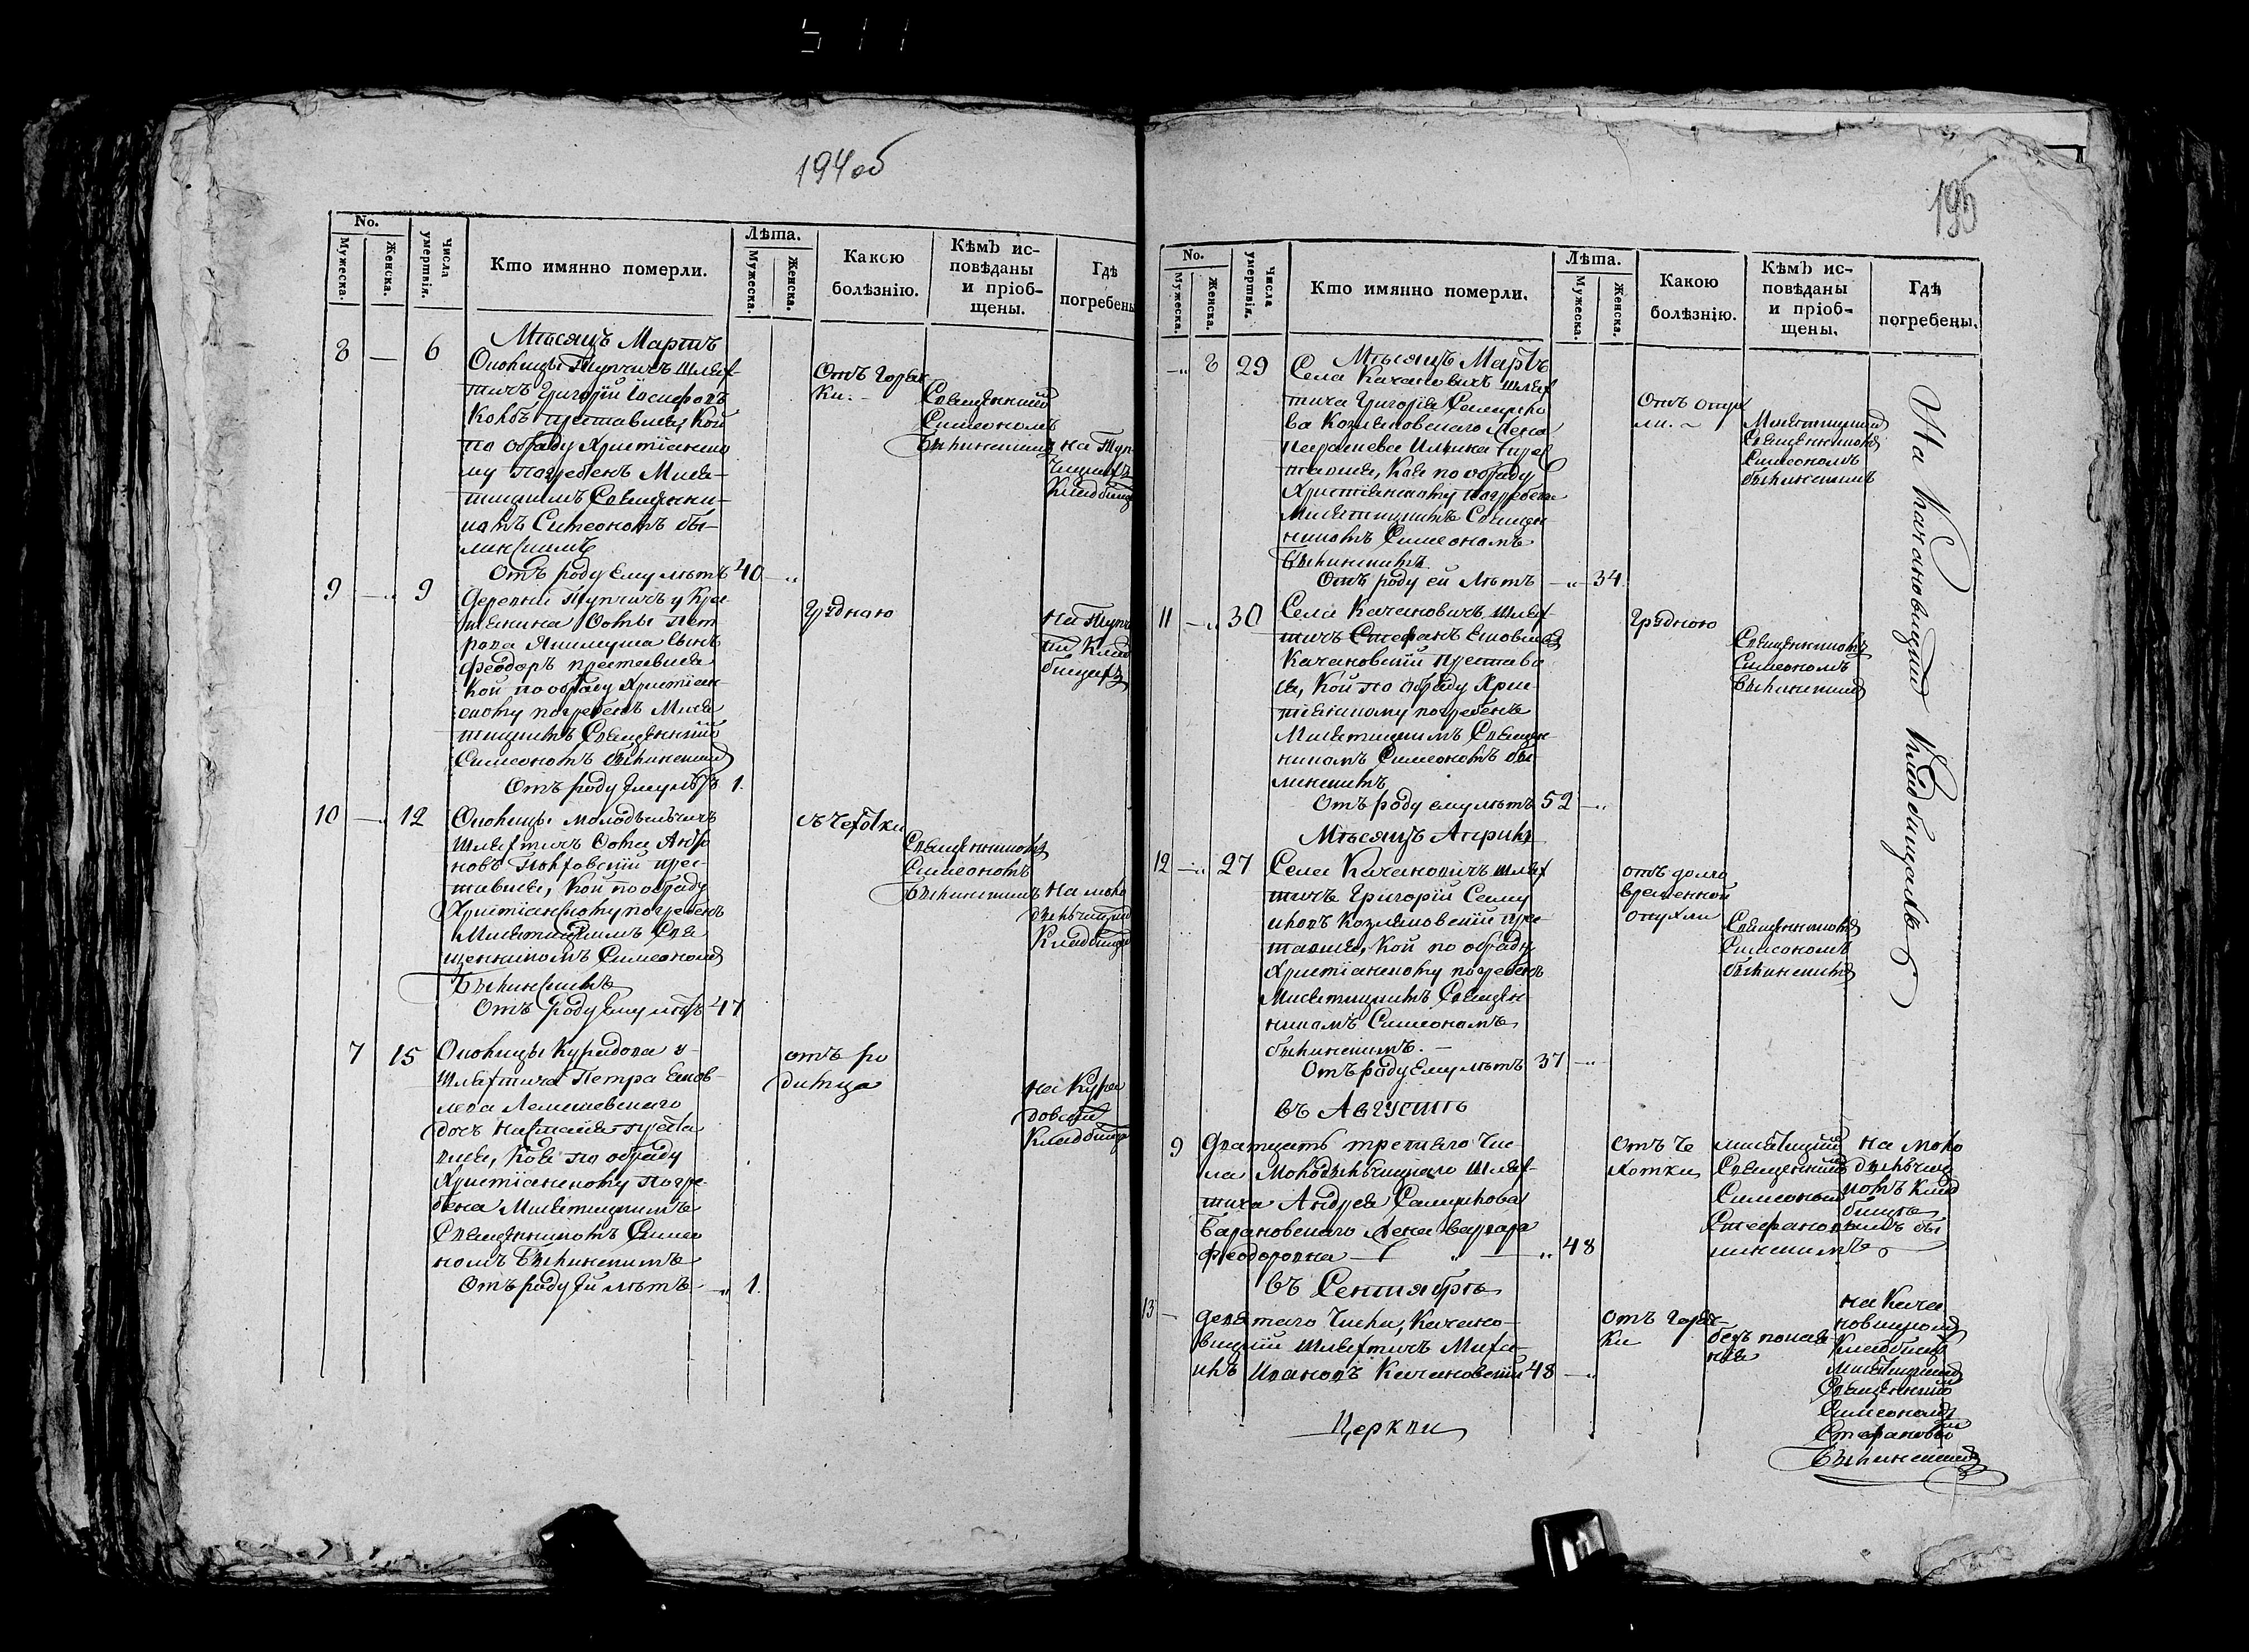 194об
No.
Мужеска.
Женска.
Числа умертвія.
Кто имянно померли.
Лѣта.
Мужеска.
Женска.
Какою болѣзнію.
Кѣмъ ис-
повѣданы
и пріоб-
щены.
Гдѣ
погребены
Мѣсяцъ Мартъ
8 — 6
Околицы Тупчичъ шлях-
тичъ Григорій Іосифовъ
преставися, Кой
по обряду Христіанско
му погребенъ Мися-
тицкимъ Священни-
комъ Симеономъ Бы-
линскимъ
Отъ роду Ему лѣтъ 40 — „
Отъ горяч
ки. —
Священникомъ
Симеономъ
Былинскимъ
на Туп-
чицкомъ
Кладбищѣ
9 — „ 9
Деревни Тупчичъ у Кре-
стянина
сынъ
Феодоръ преставися
Кой по обряду Христіан
скому погребенъ Мися
тицкимъ Священнико
Симеономъ Былинскимъ
Отъ роду Ему лѣтъ 1.
Грудною
на Тупч
Клад
бищѣ
10 — „ 12
Околицы Молодѣльчичъ
Шляхтичъ
прес-
тавися, Кой по обряду
Христіанскому погребенъ
Мисятицкимъ Свя
щенникомъ Симеономъ
Былинскимъ
Отъ роду Ему лѣтъ 47
Священникомъ
Симеономъ
Былинскимъ
на Моло
Кладбищѣ
7 15
Околицы Курадова у
Шляхтича Петра Яков-
лева Лемешевскаго
дочь Настасія преста
вися, Коя по обряду
Христіанскому погре-
бена Мисятицкимъ
Священникомъ Симео
номъ Былинскимъ
Отъ роду Ей лѣтъ — „ 1.
отъ ро
димца
на Кура
довскомъ
Кладбищѣ
195
No.
Мужеска.
Женска.
Числа умертвія.
Кто имянно померли.
Лѣта.
Мужеска.
Женска.
Какою
болѣзнію.
Кѣмъ ис-
повѣданы
и пріоб-
щены.
Гдѣ
погребены.
Мѣсяцъ Мартъ
— „ 8 29
Села Качановичъ шлях
тича Григорія Самуйло
ва Козляковскаго жена
прес
тавися, Коя по обряду
Христіанскому погребена
Мисятицкимъ Священ-
никомъ Симеономъ
Былинскимъ
Отъ роду ей лѣтъ — „ 34
Отъ опух
ли. —
Мисятицкимъ
Священникомъ
Симеономъ
Былинскимъ
На Качановицкомъ Кладбищахъ
11 — „ 30
Села Качановичъ шлях-
тичъ Стефанъ Яковлевъ
Качановскій престави
ся, Кой по обряду Хрис-
тіанскому погребенъ
Мисятицкимъ Священ-
никомъ Симеономъ Бы-
линскимъ
Отъ роду ему лѣтъ 52 — „
Грудною
Священникомъ
Симеономъ
Былинскимъ
Мѣсяцъ Априлъ
12 — „ 27
Села Качановичъ шлях
тичъ Григорій Саму
иловъ Козляковскій пре-
тавися, Кой по обряду
Христіанскому погребенъ
Мисятицкимъ Священ
никомъ Симеономъ
Былинскимъ. —
Отъ роду Ему лѣтъ 37 — „
отъ долго
временной
опухли
Священникомъ
Симеономъ
Былинскимъ
въ Августѣ
9
Дватцать третяго Чис-
ла Молодѣльчицкаго Шлях-
тича Андрея Самуилова
Барановскаго жена Варвара
Феодоровна — „ — „ 48
Отъ Че
хотки
Мисятицкимъ
Священникомъ
Симеономъ
Стефановымъ Бы
линскимъ
на Моло
дѣльчиц
комъ клад
бищѣ
въ Сентябрѣ
13 —
Девятаго Числа, Качано-
вицкій шляхтичъ Миха-
илъ Ивановъ Качановскій 48 — „
отъ горяч-
ки
безъ покая-
нія
на Кача
новицкомъ
Кладбищѣ
Мисятицкимъ
Священнико
Симеономъ
Стефановы
Былинскимъ
Церкви